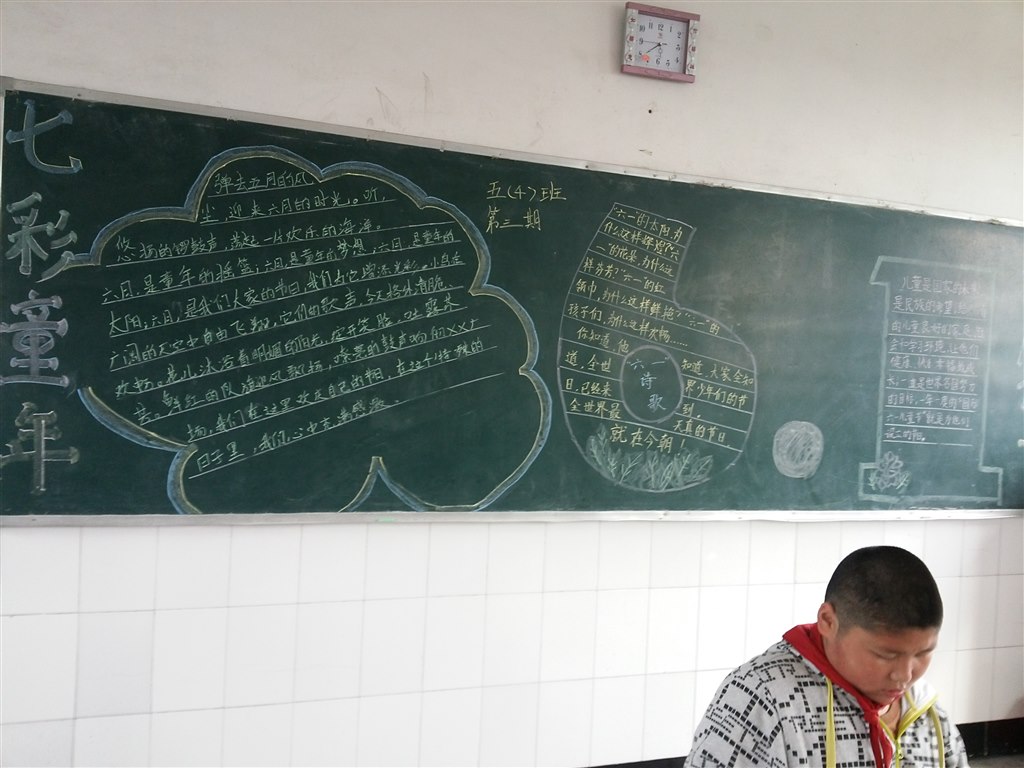 七彩童年
弹去五月的风
尘,迎来六月的时光。听,
悠扬的锣鼓声,荡起一片欢乐的海洋。
六月,是童年的摇篮;六月,是童年的梦想,六月,是童年的
太阳,六月,是我们大家的节日,我们为它增添光彩。小鸟在
广阔的天空中自由飞翔,它们的歌声
欢畅。花儿沐浴着明媚的阳光,绽开笑脸,吐露芬
芳。鲜红的队旗迎风飘扬,嘹亮的鼓声响彻xx广
场,我们在这里欢庆自己的节日,在这个特殊的
日子里,我们心中充满感激。
五(4)班
第三期
"六一"的太阳为
什么这样辉煌?"六
一"的花朵,为什么这
样芬芳?"六一"的红
领巾,为什么这样鲜艳?"六一"的
孩子们,为什么这样欢畅……
你知道,他知道,大家全知
道,全世界少年们的节
日,已经来到。
全世界最天真的节日,
就在今朝!
六一
诗
歌
儿童是国家的未来,
是民族的希望,给所有
的儿童良好的家庭、社
会和学习环境,让他们
健康、快乐、幸福地成
长,一直是世界各国努力
的目标,一年一度的"国际
六一儿童节"就是为他们
设立的节日。